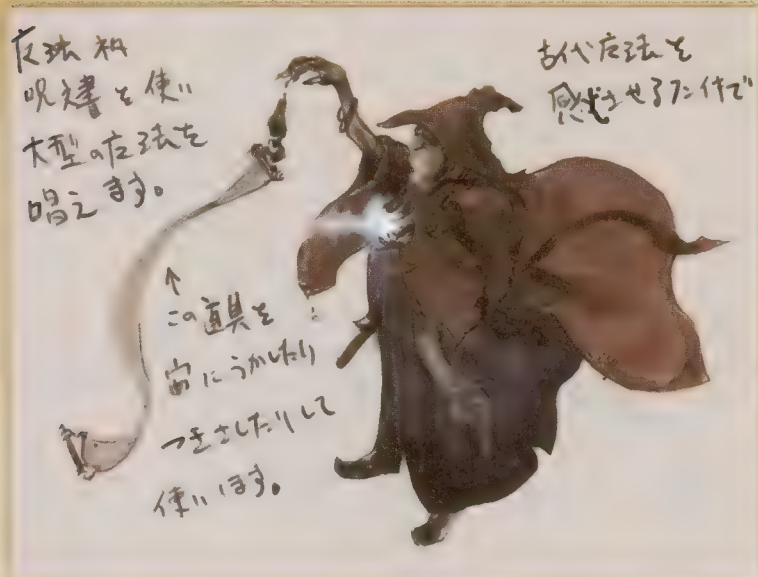 魔法
呪文書を使い
大型の魔法を
唱えます。
古代魔法を
感じさせるフンイキで
↑
この道具を
宙にうかしたり
つきさしたりして
使います。